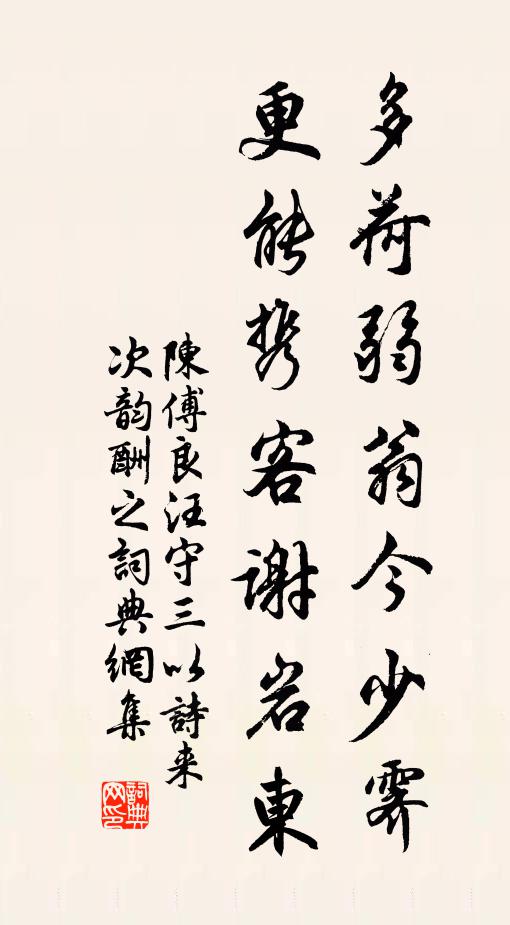 多荷弱翁今少霁
更能携客谢岩東
陳傅良汪守三以詩来
次韵酬之詞典網集
詞典网印